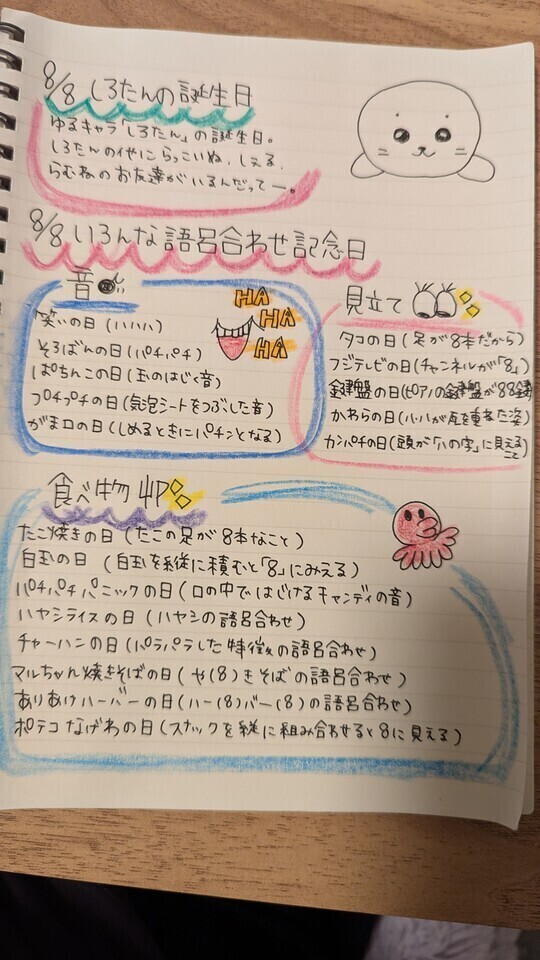 8/8 しろたんの誕生日
ゆるキャラ「しろたん」の誕生日。
しろたんの他にらっこいぬ、しぇる、
らむねのお友達がいるんだってー。
8/8 いろんな語呂合わせ記念日
音
HA
HA
HA
笑いの日(ハハハ)
そろばんの日(パチパチ)
ぱちんこの日(玉のはじく音)
プチプチの日(気泡シートをつぶした音)
がま口の日(しめるときにパチンとなる)
見立て
タコの日(足が8本だから)
フジテレビの日(チャンネルが「8」)
鍵盤の日(ピアノの鍵盤が88鍵)
かわらの日(ハ・ハが瓦を重ねた姿)
カンパチの日(頭が「ハの字」に見えること)
食べ物
たこ焼きの日(たこの足が8本なこと)
白玉の日(白玉を縦に積むと「8」にみえる)
パチパチパニックの日(口の中ではじけるキャンディの音)
ハヤシライスの日(ハヤシの語呂合わせ)
チャーハンの日(パラパラした特徴の語呂合わせ)
マルちゃん焼きそばの日(や(8)きそばの語呂合わせ)
ありあけハーバーの日(ハー(8)バー(8)の語呂合わせ)
ポテコなげわの日(スナックを縦に組み合わせると8に見える)